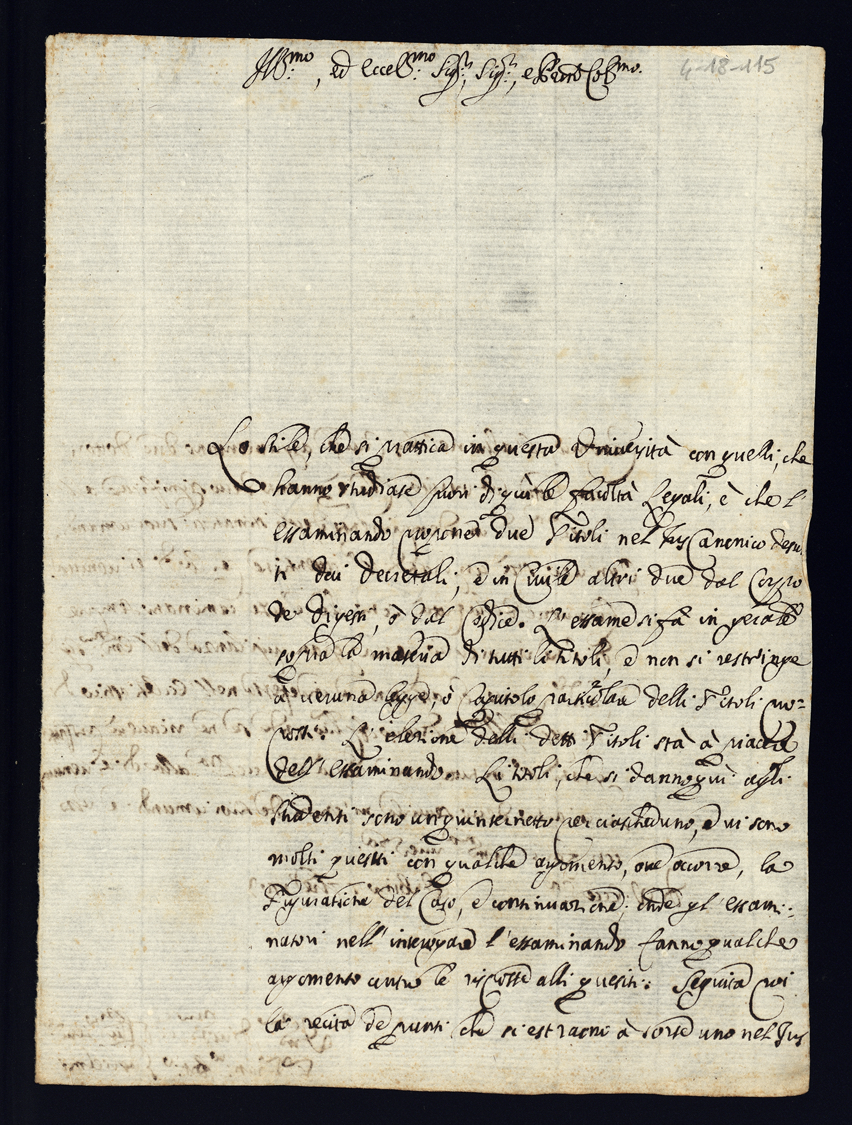 Ill:mo, ed Eccell:mo Sig:r, Sig:r, e Pron Col:mo
4-18-115
Lo stile, che si prattica in questa Università con quelli, che
hanno studiato fuori di quì le facoltà Legali, è che l'
essaminando propone due Titoli nel Jus Canonico
ti dei decretali, e in Civile altri due dal Corpo
de digesti, ò dal Codice. L'essame si fà in
sopra la materia di tutti li titoli, e non si restringe
à veruna legge, ò Capitolo particolare delli Titoli pro-
posti. L'elezione delli detti Titoli stà à piacere
dell'essaminando. Li titoli, che si danno quì agli
studenti sono un quinternetto per ciascheduno, e vi sono
molti quesiti con qualche argomento, ove occorre, la
figuratione del Caso, e continuazione; onde gl'essami-
natori nell'interrogare l'essaminando fanno qualche
argomento contro le risposte alli quesiti. Seguita poi
la recita de punti che si estraono à sorte uno nel Jus